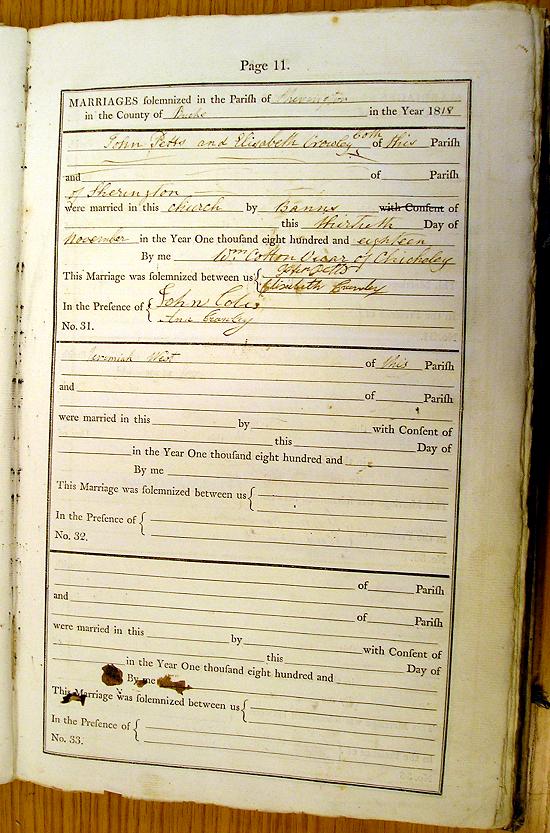 Page 11.
MARRIAGES ſolemnized in the Pariſh of Sherington
in the County of Bucks in the Year 1818
John Petts and Elisabeth Crowley both of this Pariſh
and of Pariſh
of Sherington
were married in this Church by Banns with Conſent of
this thirtieth Day of
November in the Year One thouſand eight hundred and eighteen
By me Wm Cotton Vicar of Chicheley
This Marriage was ſolemnized between us { John Petts
Elisabeth Crowley
In the Preſence of { John Cole
Ann Crowley
No. 31.
Jeremiah West of this Pariſh
and of Pariſh
were married in this by with Conſent of
this Day of
in the Year One thouſand eight hundred and
By me
This Marriage was ſolemnized between us {
In the Preſence of {
No. 32.
of Pariſh
and
of Pariſh
were married in this by with Conſent of
this Day of
in the Year One thouſand eight hundred and
By me
This Marriage was ſolemnized between us {
In the Preſence of {
No. 33.